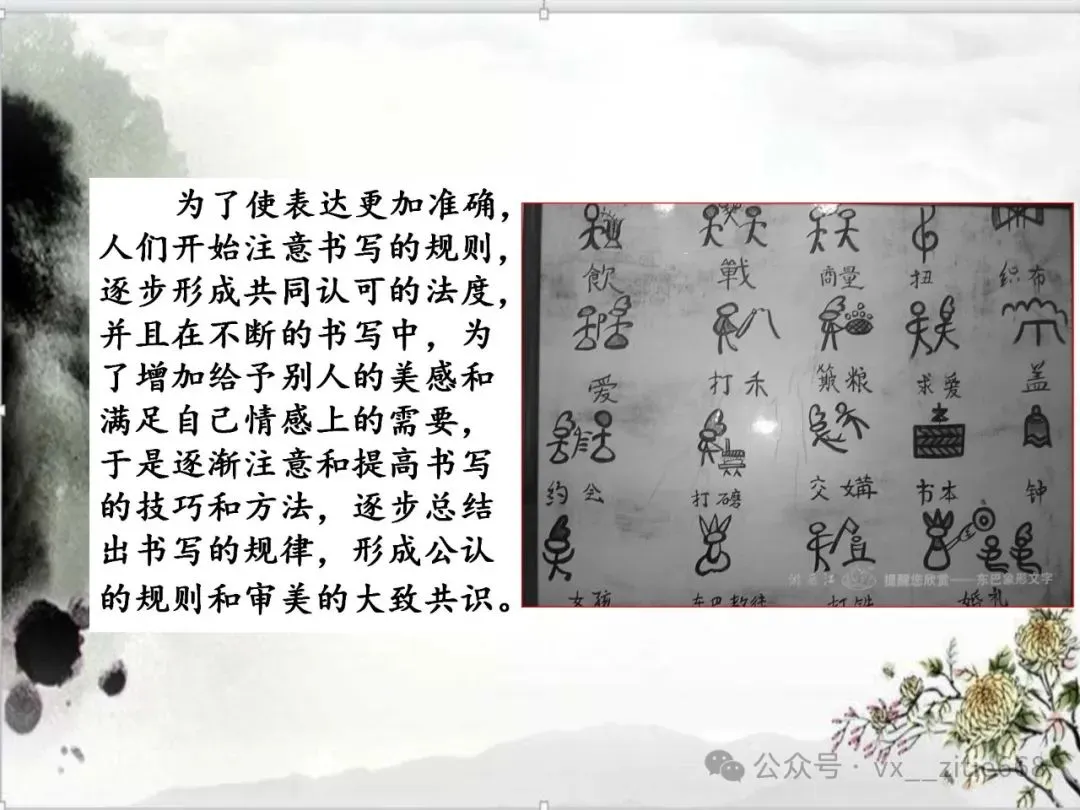 为了使表达更加准确，
人们开始注意书写的规则，
逐步形成共同认可的法度，
并且在不断的书写中，为
了增加给予别人的美感和
满足自己情感上的需要，
于是逐渐注意和提高书写
的技巧和方法，逐步总结
出书写的规律，形成公认
的规则和审美的大致共识。
飲 戰 商量 扭 织布
爱 打禾 簸粮 求爱 盖
约会 打磨 交媾 书本 钟
提醒您欣赏——东巴象形文字
女孩 东巴教徒 打铁 婚礼
公众号·vx__zitie668